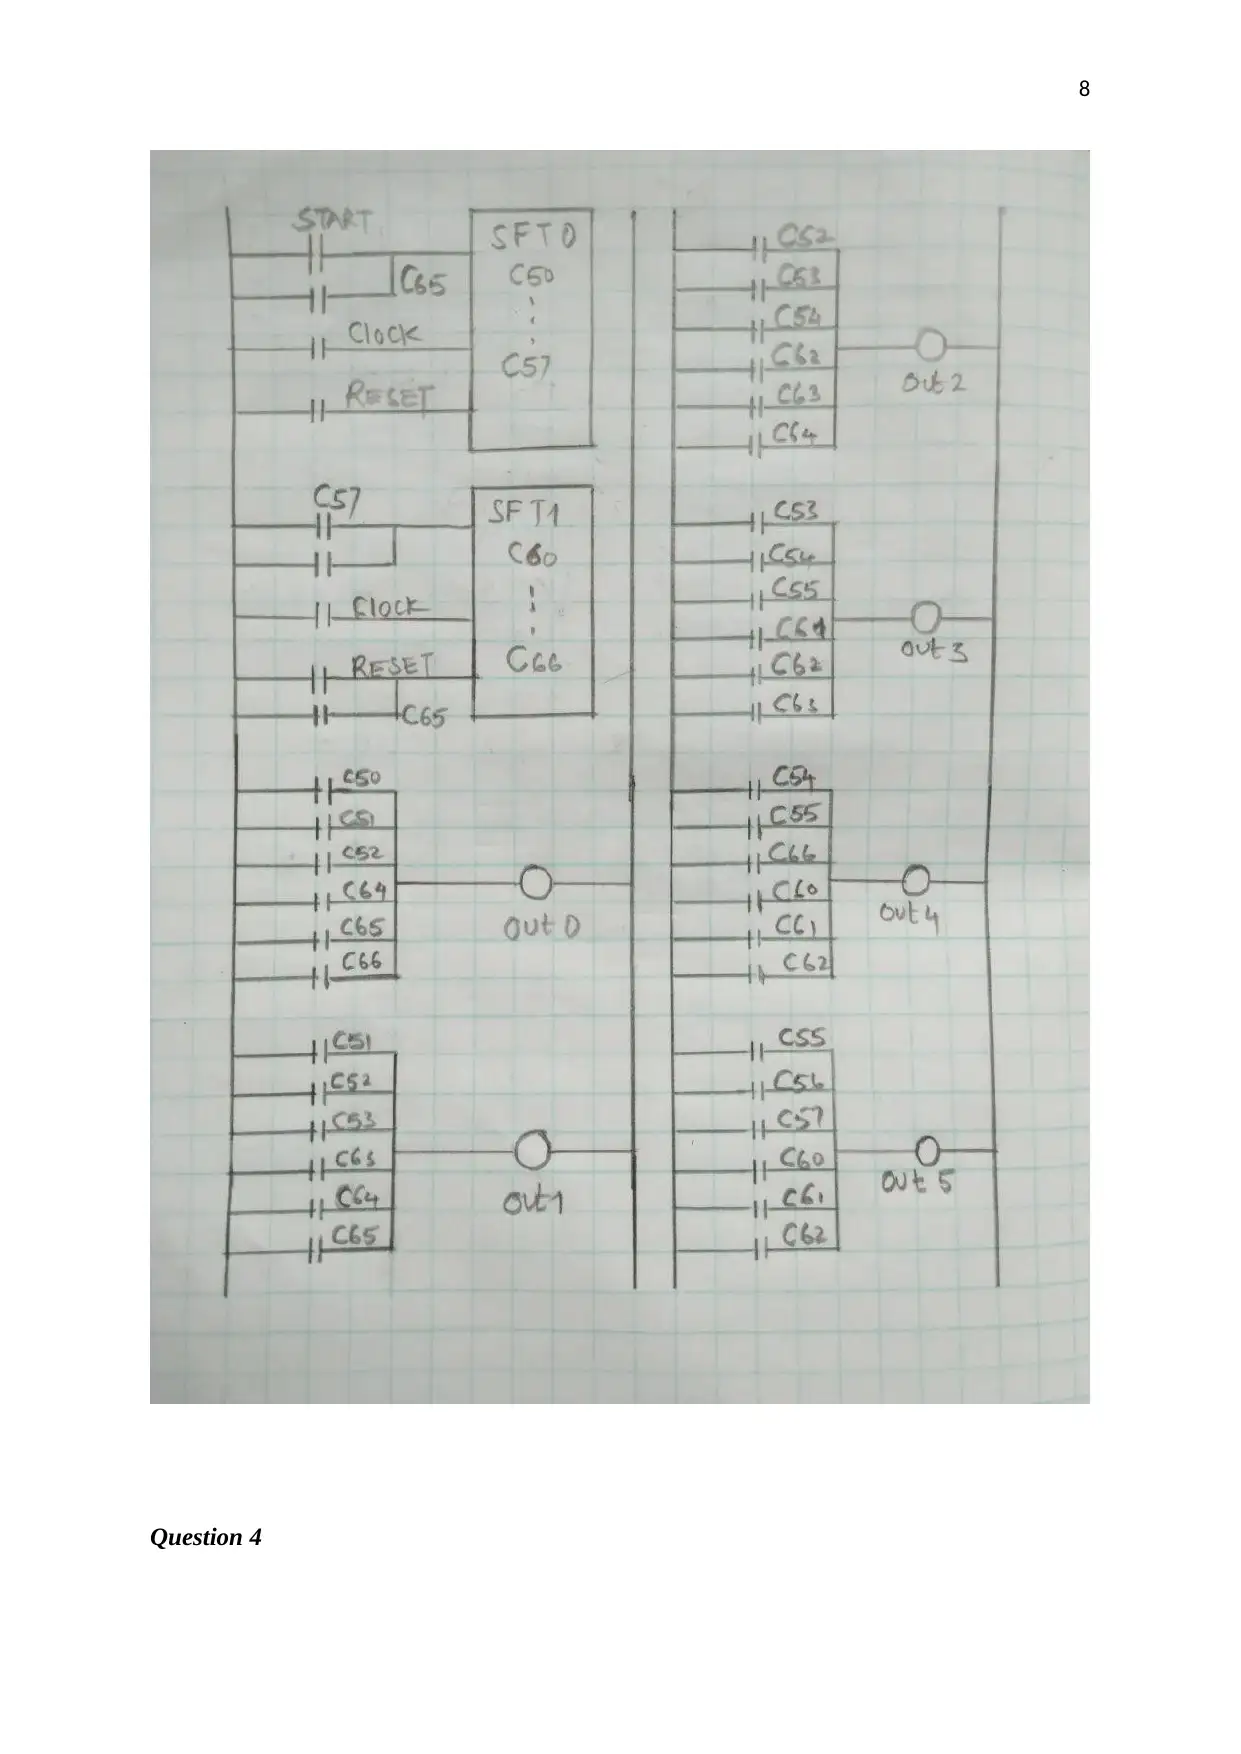 8
START
SFT0
C50
C65
Clock
C57
RESET
C57
SFT1
C60
Clock
RESET
C66
C65
C50
C51
C52
C64
C65
C66
Out 0
C51
C52
C53
C63
C64
C65
Out1
C52
C53
C54
C62
C63
C64
Out 2
C53
C54
C55
C61
C62
C63
Out 3
C54
C55
C66
C60
C61
C62
Out 4
C55
C56
C57
C60
C61
C62
Out 5
Question 4